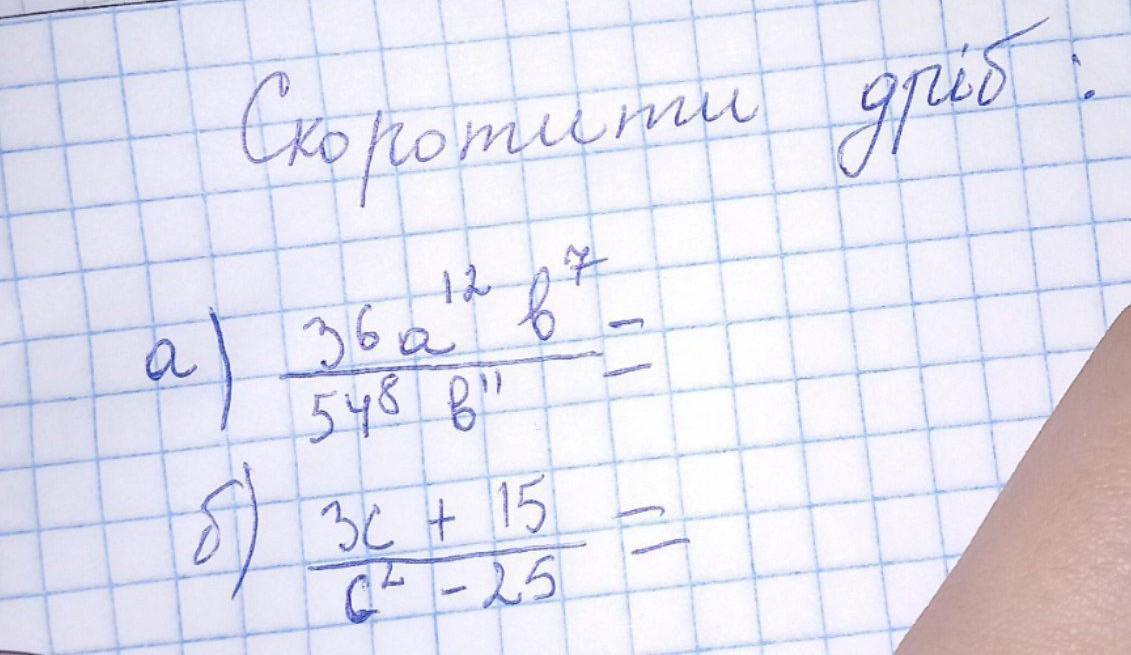 Скоротити дріб :
а) 36a¹² b⁷ / 54⁸ b¹¹ =
б) 3c + 15 / c² - 25 =